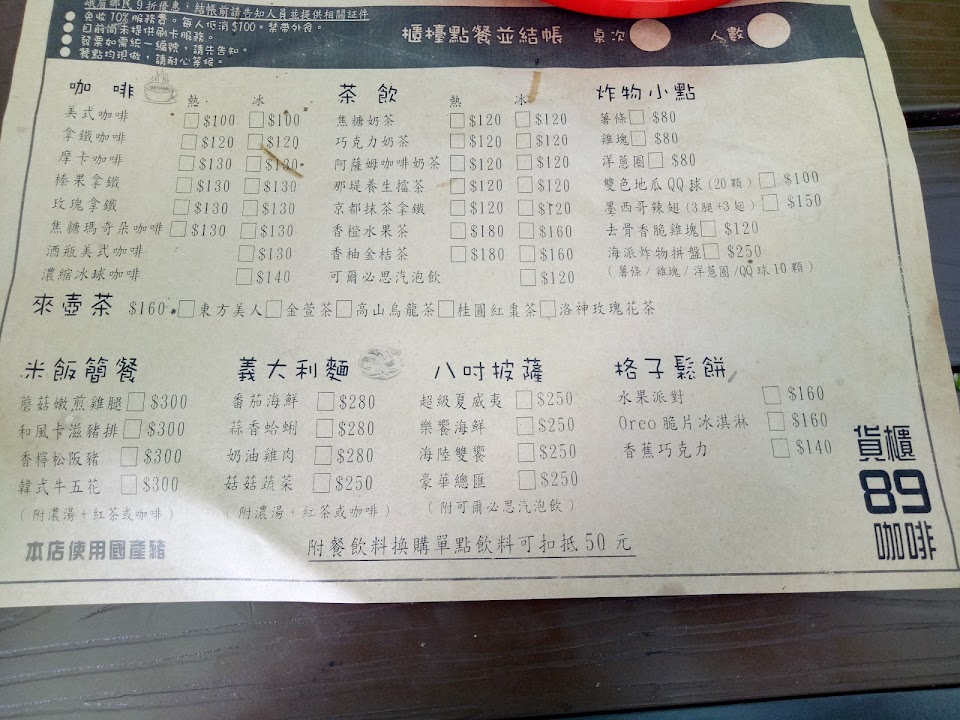 峨眉鄉民9折優惠，結帳前請告知人員並提供相關証件
免收10%服務費。每人低消$100。禁帶外食。
目前尚未提供刷卡服務。
發票如需統一編號，請先告知。
餐點均現做，請耐心等候。
櫃檯點餐並結帳 桌次 人數
咖啡 熱 冰
美式咖啡 $100 $100
拿鐵咖啡 $120 $120
摩卡咖啡 $130 $130
榛果拿鐵 $130 $130
玫瑰拿鐵 $130 $130
焦糖瑪奇朵咖啡 $130 $130
酒瓶美式咖啡 $130
濃縮冰球咖啡 $140
茶飲 熱 冰
焦糖奶茶 $120 $120
巧克力奶茶 $120 $120
阿薩姆咖啡奶茶 $120 $120
那堤養生擂茶 $120 $120
京都抹茶拿鐵 $120 $120
香橙水果茶 $180 $160
香柚金桔茶 $180 $160
可爾必思汽泡飲 $120
炸物小點
薯條 $80
雞塊 $80
洋蔥圈 $80
雙色地瓜QQ球(20顆) $100
墨西哥辣翅(3腿+3翅) $150
去骨香脆雞塊 $120
海派炸物拼盤 $250
(薯條/雞塊/洋蔥圈/QQ球10顆)
來壺茶 $160 東方美人 金萱茶 高山烏龍茶 桂圓紅棗茶 洛神玫瑰花茶
米飯簡餐
蘑菇嫩煎雞腿 $300
和風卡滋豬排 $300
香檸松阪豬 $300
韓式牛五花 $300
(附濃湯+紅茶或咖啡)
義大利麵
番茄海鮮 $280
蒜香蛤蜊 $280
奶油雞肉 $280
菇菇蔬菜 $250
(附濃湯+紅茶或咖啡)
八吋披薩
超級夏威夷 $250
樂饗海鮮 $250
海陸雙饗 $250
豪華總匯 $250
(附可爾必思汽泡飲)
格子鬆餅
水果派對 $160
Oreo脆片冰淇淋 $160
香蕉巧克力 $140
本店使用國產豬
附餐飲料換購單點飲料可扣抵50元
貨櫃
89
咖啡